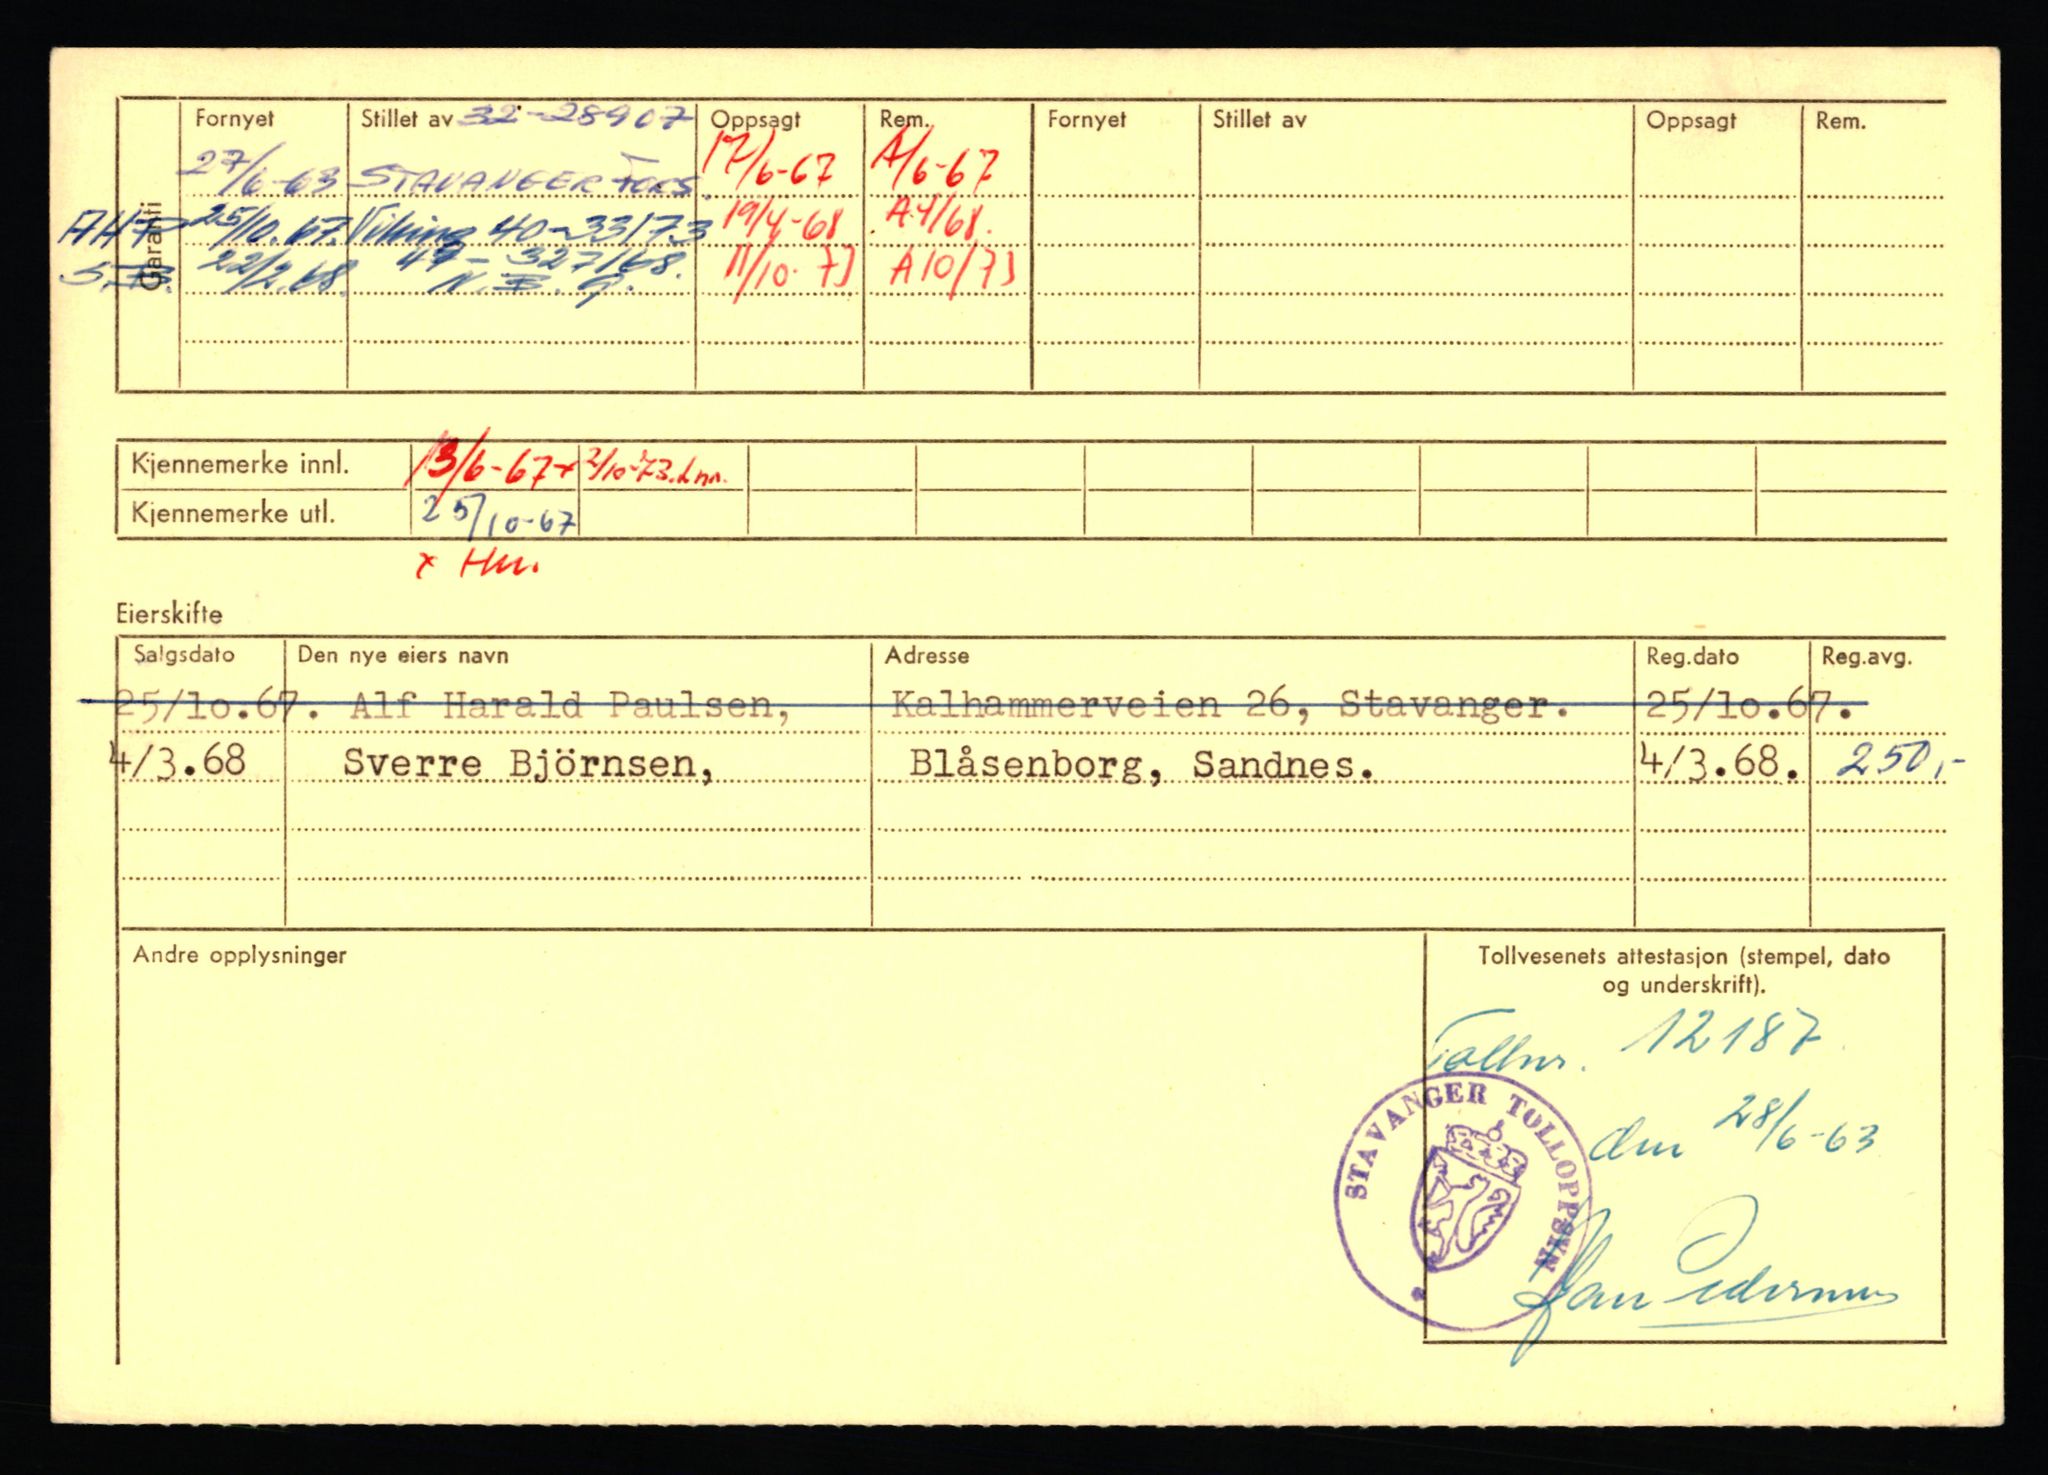 Fornyet Stillet av 32-28907 Oppsagt Rem. Fornyet Stillet av Oppsagt Rem.
Garanti
27/6-63 STAVANGER FORS. 17/6-67 A/6-67
AHP 25/10.67. Viking 40-33173 19/4-68 A4/68.
S.B. 22/2.68. 47-327/68. 11/10-73 A10/73
N.B.G.
Kjennemerke innl. 13/6-67+ 2/10-73.
Kjennemerke utl. 25/10-67
x Hm.
Eierskifte
Salgsdato Den nye eiers navn Adresse Reg.dato Reg.avg.
25/10.67. Alf Harald Paulsen, Kalhammerveien 26, Stavanger. 25/10.67.
4/3.68 Sverre Björnsen, Blåsenborg, Sandnes. 4/3.68. 250,-
Andre opplysninger
Tollvesenets attestasjon (stempel, dato
og underskrift).
Tollnr. 12187
STAVANGER TOLLOPPSYN
den 28/6-63
Jan Pedersen